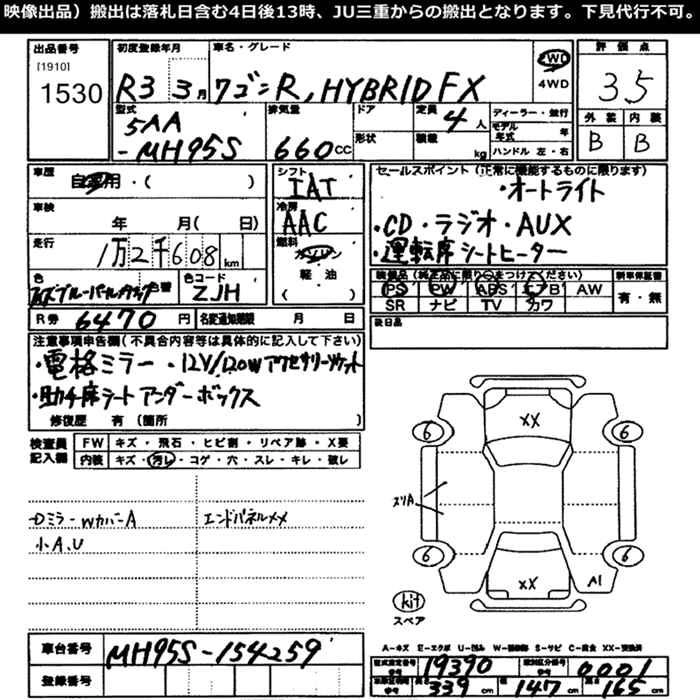 映像出品）搬出は落札日含む4日後13時、JU三重からの搬出となります。下見代行不可。
出品番号
[1910]
1530
初度登録年月
R3 3月
車名・グレード
ワゴンR, HYBRID FX
2WD
4WD
評価点
3.5
外装 内装
B B
型式
5AA
-MH95S
排気量
660cc
ドア
形状
定員
4人
積載
kg
ディーラー・並行
モデル年式 年
ハンドル 左・右
車歴
自家用・( )
車検
年 月( 日)
走行
1万2千608km
色
色替
色コード
ZJH
R券 6470円
名変通知期限 月 日
シフト
IAT
冷房
AAC
燃料
ガソリン
軽油
( )
セールスポイント(正常に機能するものに限ります)
・オートライト
・CD・ラジオ・AUX
・運転席シートヒーター
装備品(純正品に限り○をつけてください)
PS PW ABS エアB AW
SR ナビ TV カワ
新車保証書
有・無
後日品
注意事項申告欄(不具合内容等は具体的に記入して下さい)
・電格ミラー・12V/120Wアクセサリーソケット
・助手席シートアンダーボックス
修復歴 有(箇所 )
検査員記入欄
FW キズ・飛石・ヒビ割・リペア跡・X要
内装 キズ・汚レ・コゲ・穴・スレ・キレ・破レ
DミラーWカバーA
小A、U
エンドパネルXX
XX
6 6
スリA
6 6
XX
A1
kit
スペア
A-キズ E-エクボ U-凹み W-補修跡 S-サビ C-腐食 XX-交換済
車台番号 MH95S-154259
登録番号
型式指定番号 参考 19390
類別区分番号 参考 0001
長さ 339cm 幅 147cm 高さ 165cm